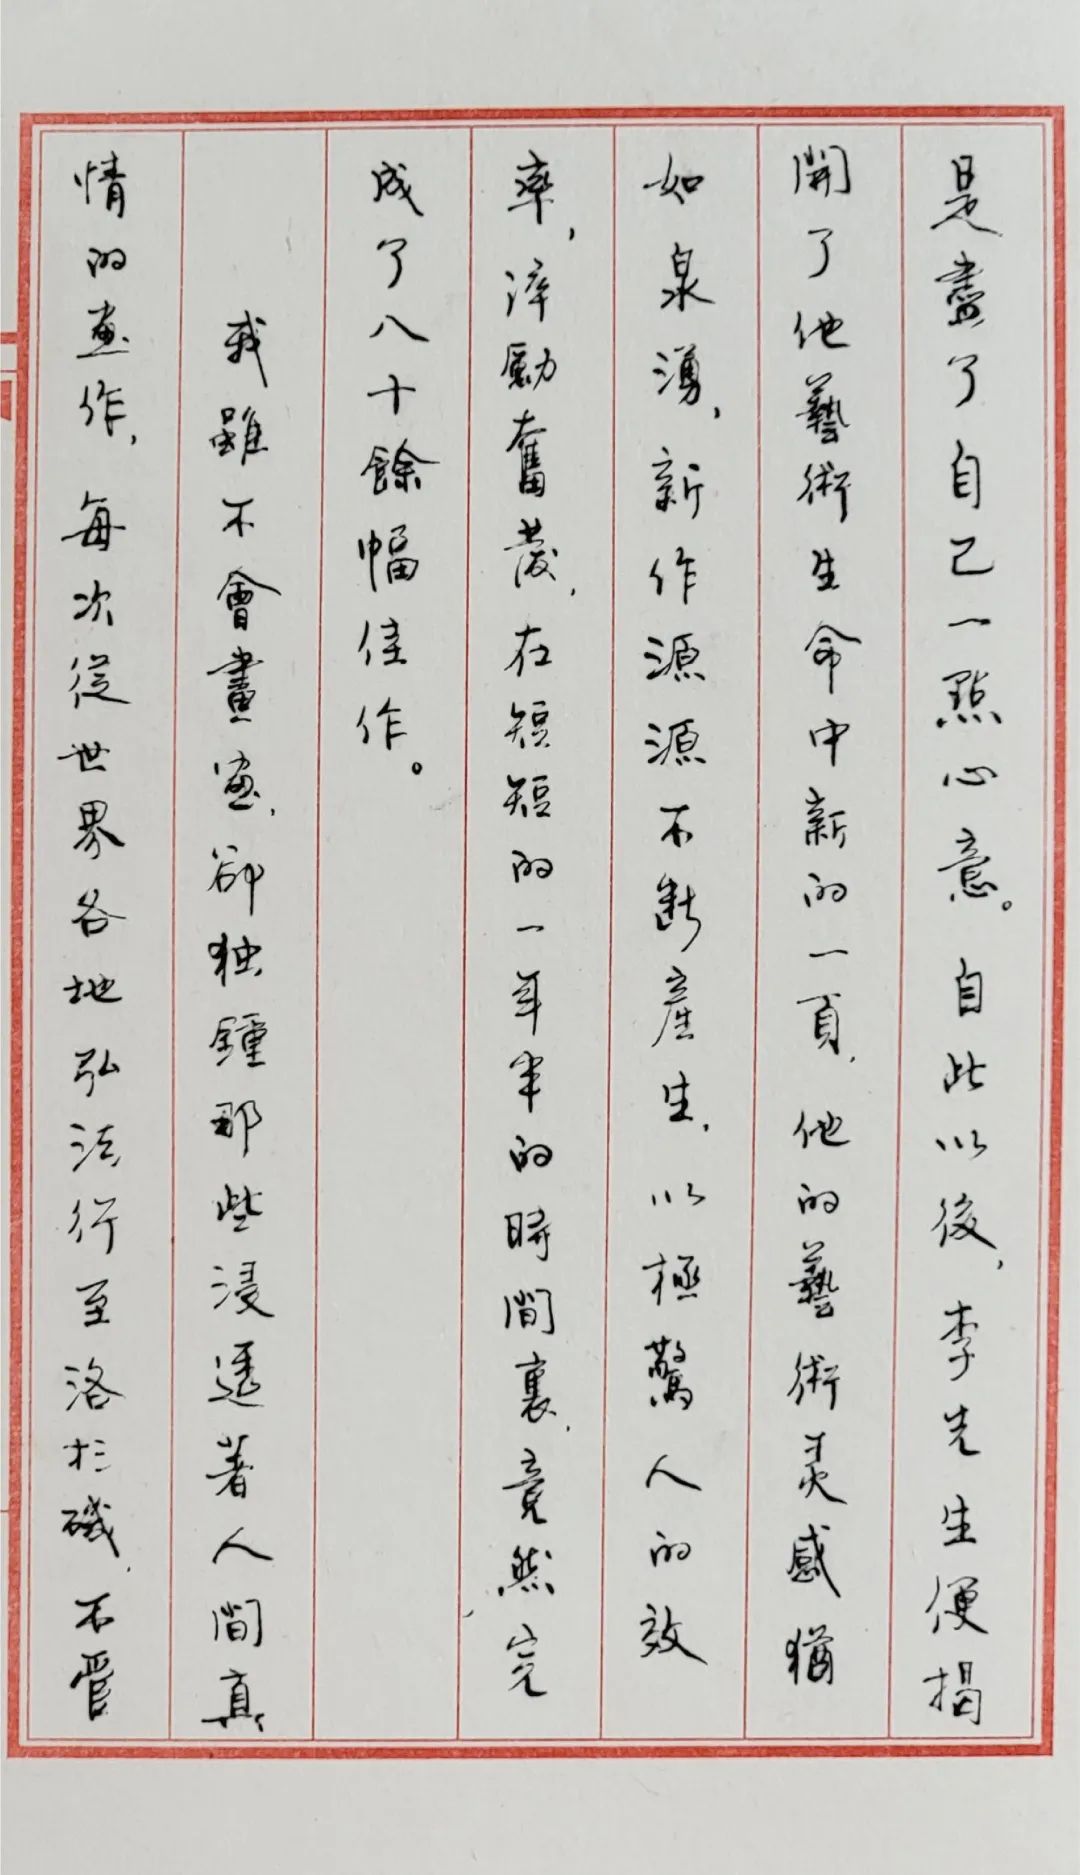 是盡了自己一點心意。自此以後，李先生便揭
開了他藝術生命中新的一頁，他的藝術灵感猶
如泉湧，新作源源不断產生，以極驚人的效
率，淬勵奮發，在短短的一年半的時間裏，竟然完
成了八十餘幅佳作。
我雖不會畫画，卻独鍾那些浸透著人間真
情的画作，每次從世界各地弘法行至洛杉磯，不管